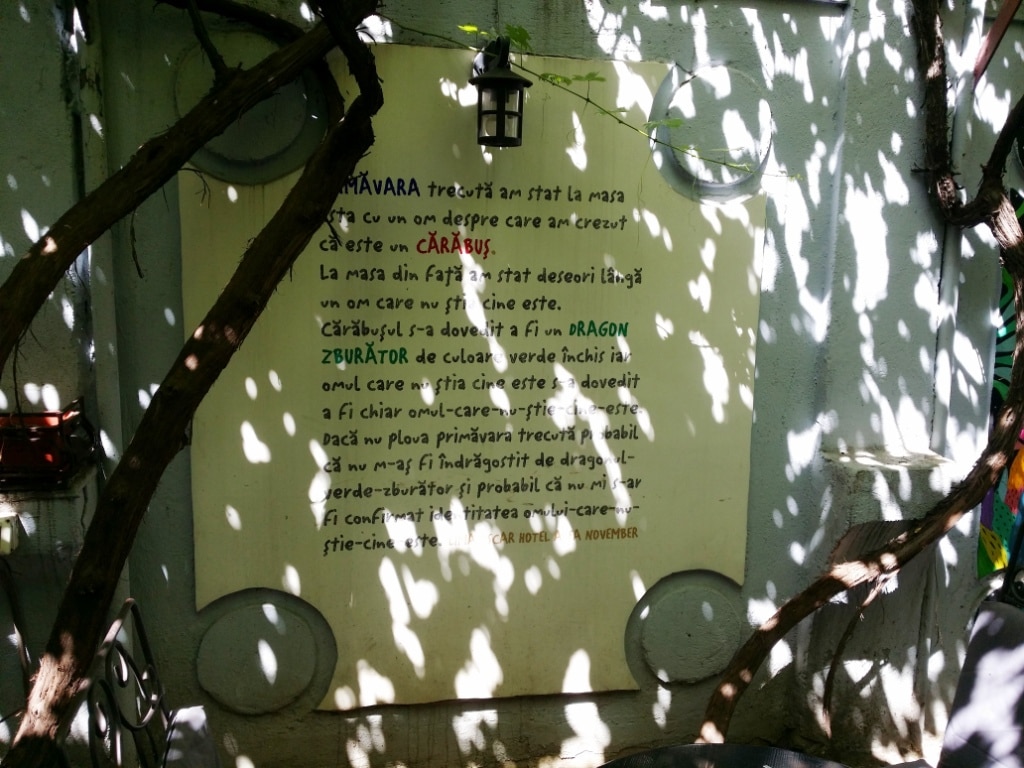 MĂVARA trecută am stat la masa
asta cu un om despre care am crezut
că este un CĂRĂBUȘ.
La masa din față am stat deseori lângă
un om care nu știa cine este.
Cărăbușul s-a dovedit a fi un DRAGON
ZBURĂTOR de culoare verde închis iar
omul care nu știa cine este s-a dovedit
a fi chiar omul-care-nu-știe-cine-este.
Dacă nu ploua primăvara trecută probabil
că nu m-aș fi îndrăgostit de dragonul-
verde-zburător și probabil că nu mi s-ar
fi confirmat identitatea omului-care-nu-
știe-cine-este. HOTEL NOVEMBER